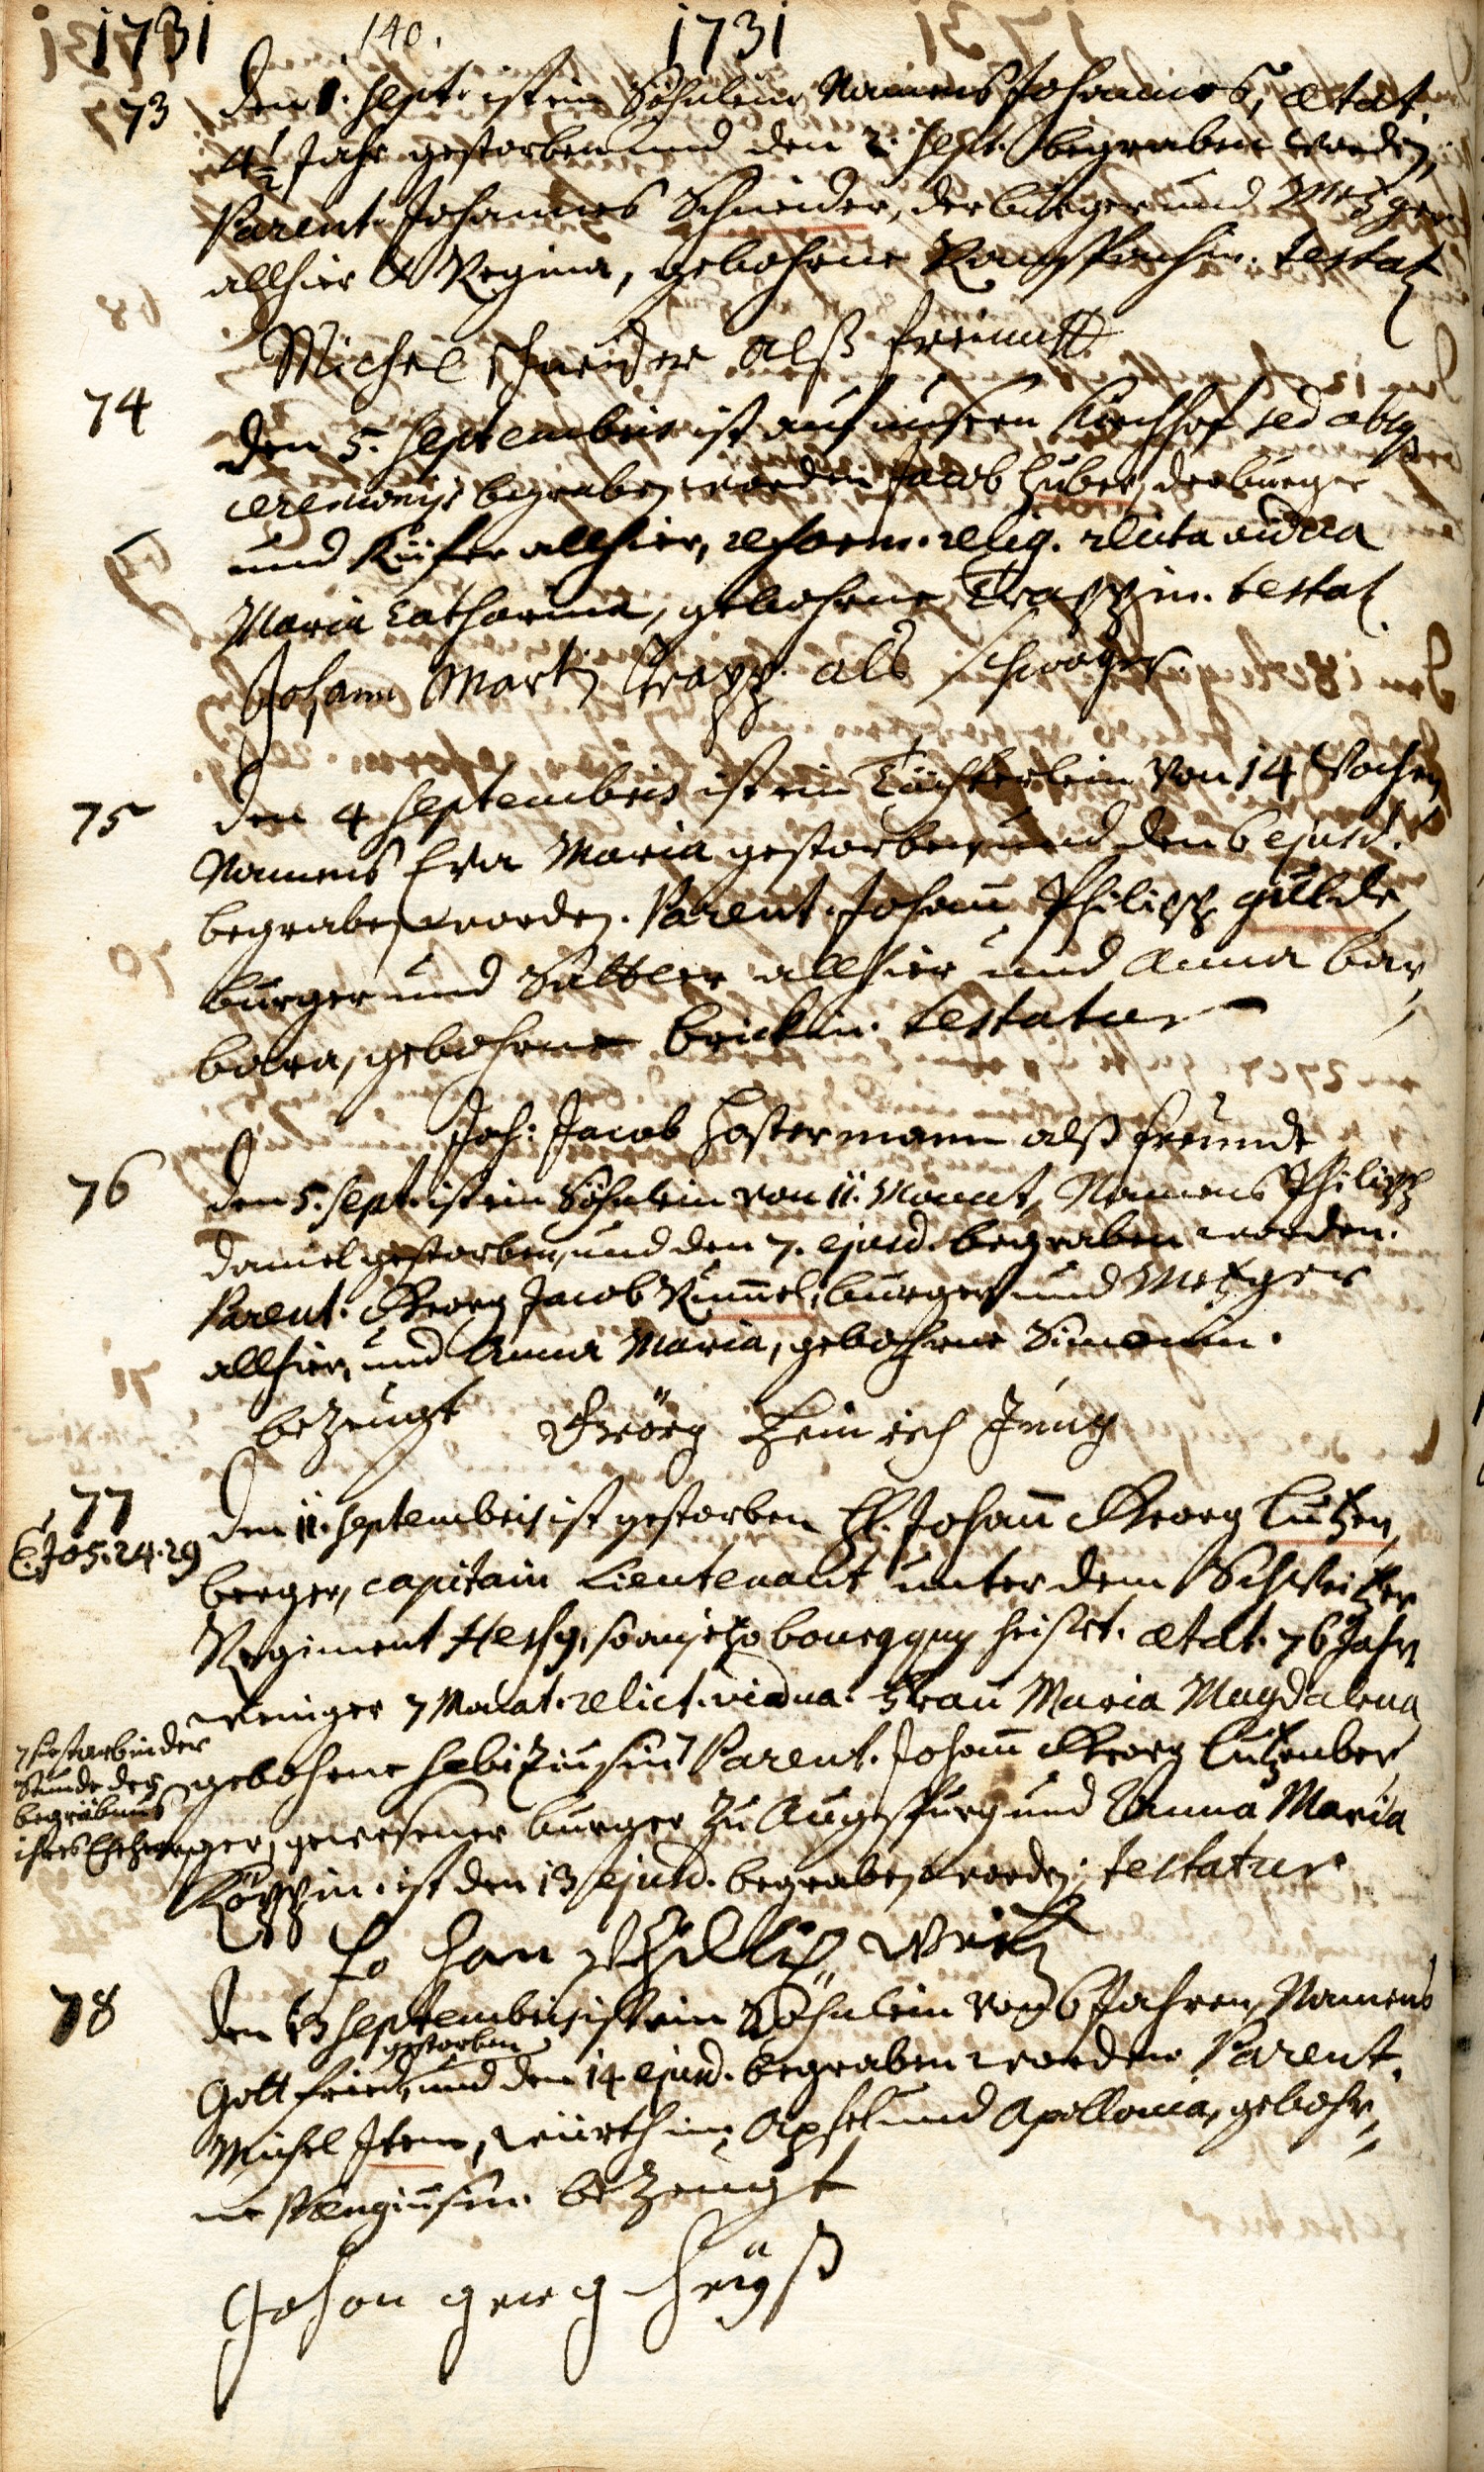 1731 140. 1731
73 den 1. Sept. ist ein Söhnlein Namens Johannes, ætat.
4½ Jahr gestorben und den 2. Sept. begraben worden,
Parent. Johannes Schneider, der burger und Metzger
allhier & Regina, gebohrne testat.
Michel schneider alß freund
74 den 5. Septembris ist auf unsern Kirchhof sed absq
ceremonijs begraben worden Jacob Huber, der burger
und Küfer allhier, reform. relig. relicta vidua
Maria Catharina, gebohrne Trappin. testat.
Johann Martin Trapp als schwager
75 den 4 Septembris ist ein Töchterlein von 14 Wochen,
Namens Eva Maria gestorben und den 6 ejusd.
begraben worden. Parent. Johañ Philipp Gülde,
burger und Sattler allhier und Anna Bar,,
bara, gebohrne Brickin. testatur
Joh: Jacob Hostermann alß freunde
76 den 5. Sept. ist ein Söhnlein von 11. Monat, Namens Philipp
Daniel gestorben, und den 7. ejusd. begraben worden.
Parent. Georg Jacob Kum̃el, burger und Metzger
allhier, und Anna Maria, gebohrne Simonin.
bezeugt Geörg Heinrich Jung
77 den 11. Septembris ist gestorben H. Johañ Georg Lutzen,
berger, capitain Lieutenant unter dem Schweitzer
Regiment Hessy, so anjetzo bourgquy heisset. ætat. 76 Jahr
weniger 7 Monat. relict. vidua. Frau Maria Magdalena
gebohrne Parent. Johañ Georg Lutzenber,
ger, gewesener burger zu Augspurg und Anna Maria
Köppin. ist den 13 ejusd. begraben worden; testatur
E. Jos. 24. 29
starb in der
Stunde der
begräbnus
ihres Eheherrn
Johan Phillip Weitz
78 den 13 Septembris ist ein Söhnlein von 6 Jahren, Namens
gestorben
Gottfried, und den 14. ejusd. begraben worden Parent.
Michel Item, würth im Apfel und Apollonia, gebohr,,
ne bezeugt
Johan georg Heyß